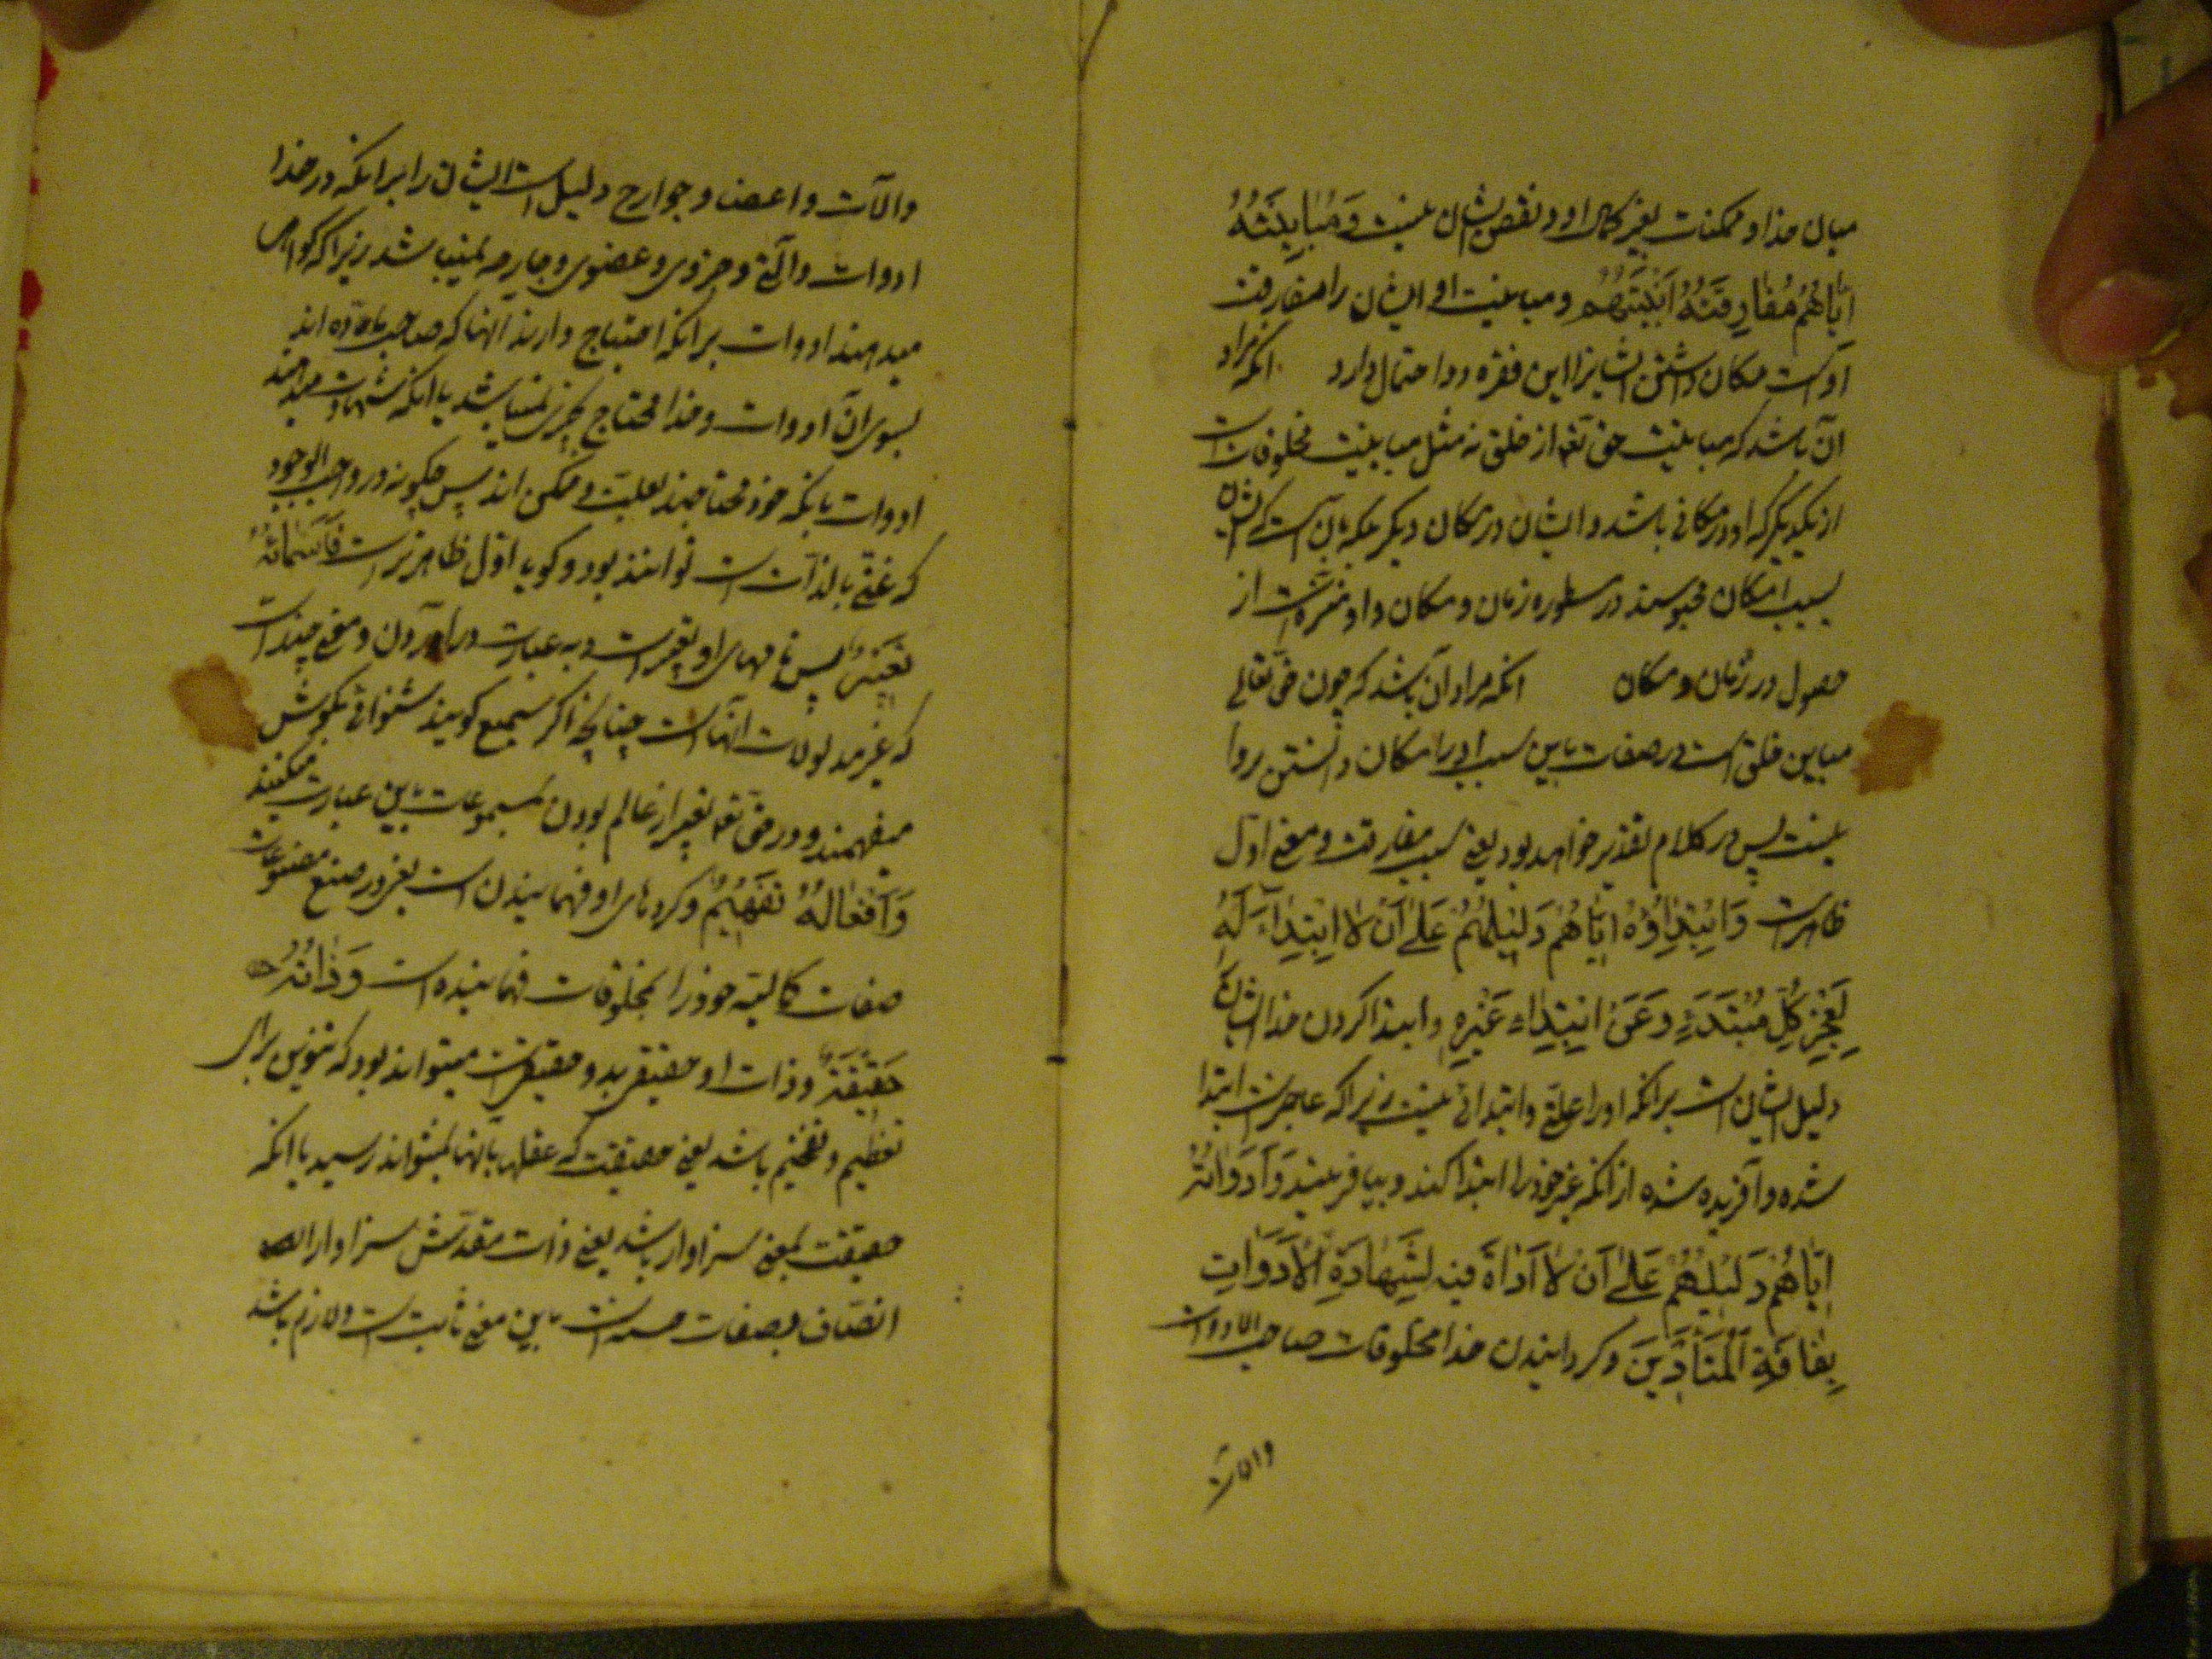 میان خدا و ممکنات بغیر کمال او و نقص ایشان نیست وَ مُبایِنَتُهُ
اِیّاهُم مُفارِقَتُهُ اَیْنِیَّتَهُم و مباینت او ایشان را مفارقت
اوست مکان داشتن ایشانرا این فقره دو احتمال دارد انکه مراد
آن باشد که مباینت حق تعه از خلق نه مثل مباینت مخلوقات است
از یکدیکر که او در مکانی باشد و ایشان در مکان دیکر بلکه بآن است که ایشان
بسبب امکان محبوسند در زمان و مکان و او منزه است از
حصول در زمان و مکان انکه مراد آن باشد که چون حق تعالی
مباین خلق است در صفات باین سبب او را مکان داشتن روا
نیست پس در کلام تقدیر خواهد بود یعنی سبب مفارقت و معنی اول
ظاهرست وَ ابْتِداؤُهُ اِیّاهُم دَلیلُهُم عَلی اَن لا ابْتِداءَ لَهُ
لِعَجْزِ کُلِّ مُبْتَدَءٍ عَن ابْتِداءِ غَیْرِهِ و ابتدا کردن خدا ایشان را
دلیل ایشان است برانکه او را علتی و ابتدائی نیست زیرا که عاجزست ابتدا
شده و آفریده شده از انکه غیر خود را ابتدا کند و بیافریند وَ اَدَواتُهُ
اِیّاهُم دَلیلُهُم عَلی اَن لا اَداةَ فیهِ لِشَهادَةِ الاَدَواتِ
بِفاقَةِ المُتَأَدّینَ و کردانیدن خدا مخلوقات صاحب ادوات
والات
والآت و اعضا و جوارح دلیل است ایشان را برانکه در خدا
ادوات و آلتی و جزوی و عضوی و جارحه نمیباشد زیرا که کواهی
میدهند ادوات برانکه احتیاج دارند آنها که صاحب ماده اند
بسوی آن ادوات و خدا محتاج بچیزی نمیباشد یا انکه شهادت میدهند
ادوات بانکه خود محتاجند بعلت و ممکن اند پس چکونه در واجب الوجود
که غنی بالذات است توانند بود و کویا اول ظاهرترست فَاَسْمائُهُ
تَعْبیرٌ پس نامهای او تعبیرست و به عبارت درآوردن و معنی چند است
که غیر مدلولات آنهاست چنانچه اکر سمیع کویند شنوائی بکوش
میفهمند و در حق تعه تعبیر از عالم بودن بمسموعات باین عبارت میکنند
وَ اَفْعالُهُ تَفْهیمٌ و کردهای او فهمانیدن است یعنی در صنع مصنوعات
صفات کمالیه خود را بمخلوقات فهمانیده است وَ ذاتُهُ
حَقیقَةٌ و ذات او حقیقتی بد و حقیقت میتواند بود که تنوین برای
تعظیم و تفخیم باشد یعنی حقیقت که عقلها بآنها نمیتواند رسید یا انکه
حقیقت بمعنی سزاوار باشد یعنی ذات مقدسش سزاوار
اتصاف بصفات حسنه است باین معنی ثابت است و لازم باشد